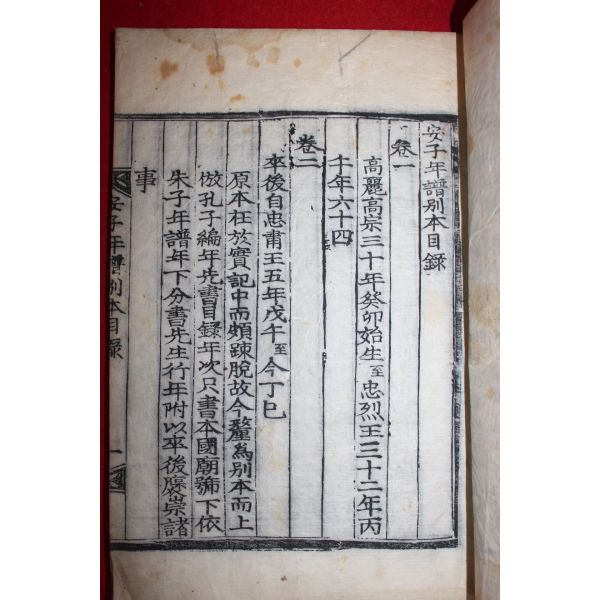 安子年譜別本目録
卷一
高麗高宗三十年癸卯始生至忠烈王三十二年丙
午年六十四
卷二
卒後自忠肅王五年戊午至今丁巳
原本在於實記中而頗踈脫故今釐爲別本而上
倣孔子編年先書目錄年次只書本國廟號下依
朱子年譜年下分書先生行年附以卒後褒崇諸
事
安子年譜別本目录
一